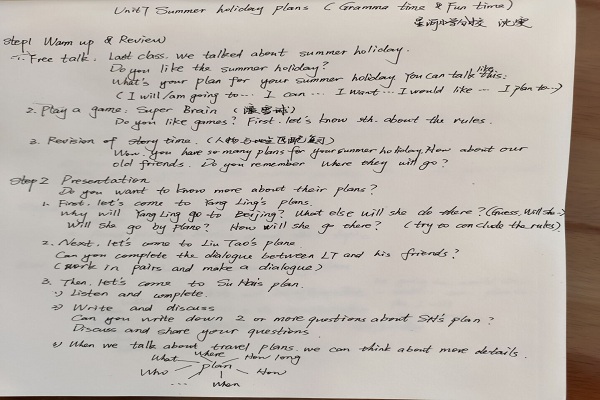 Unit7 Summer holiday plans ( Gramma time & Fun time)
星河小学分校 沈雯
Step1 Warm up & Review
1. Free talk. Last class. we talked about summer holiday.
Do you like the summer holiday?
What's your plan for your summer holiday You can talk like this:
( I will / am going to ··· I can ··· I want ··· I would like ··· I plan to ···)
2. Play a game: Super Brain (滚雪球)
Do you like games? First. let's know sth. about the rules.
3. Revision of story time. (人物
Wow. you have so many plans for your summer holiday. How about our
old friends. Do you remember where they will go?
Step2 Presentation
Do you want to know more about their plans?
1. First. let's come to Yang Ling's plans.
Why will Yang Ling go to Beijing? What else will she do there? (Guess, Will she ···)
Will she go by plane? How will she go there? (try to conclude the rules)
2. Next. let's come to Liu Tao's plane
Can you complete the dialogue between LT and his friends?
(work in pairs and make a dialogue)
3. Then. let's come to Su Hai's plan.
1) Listen and complete.
2) Write and discuss
Can you write down 2 or more questions about SH's plan?
Discuss and share your questions
When we talk about travel plans. we can think about more details.
What where How long
Who plan How
··· When